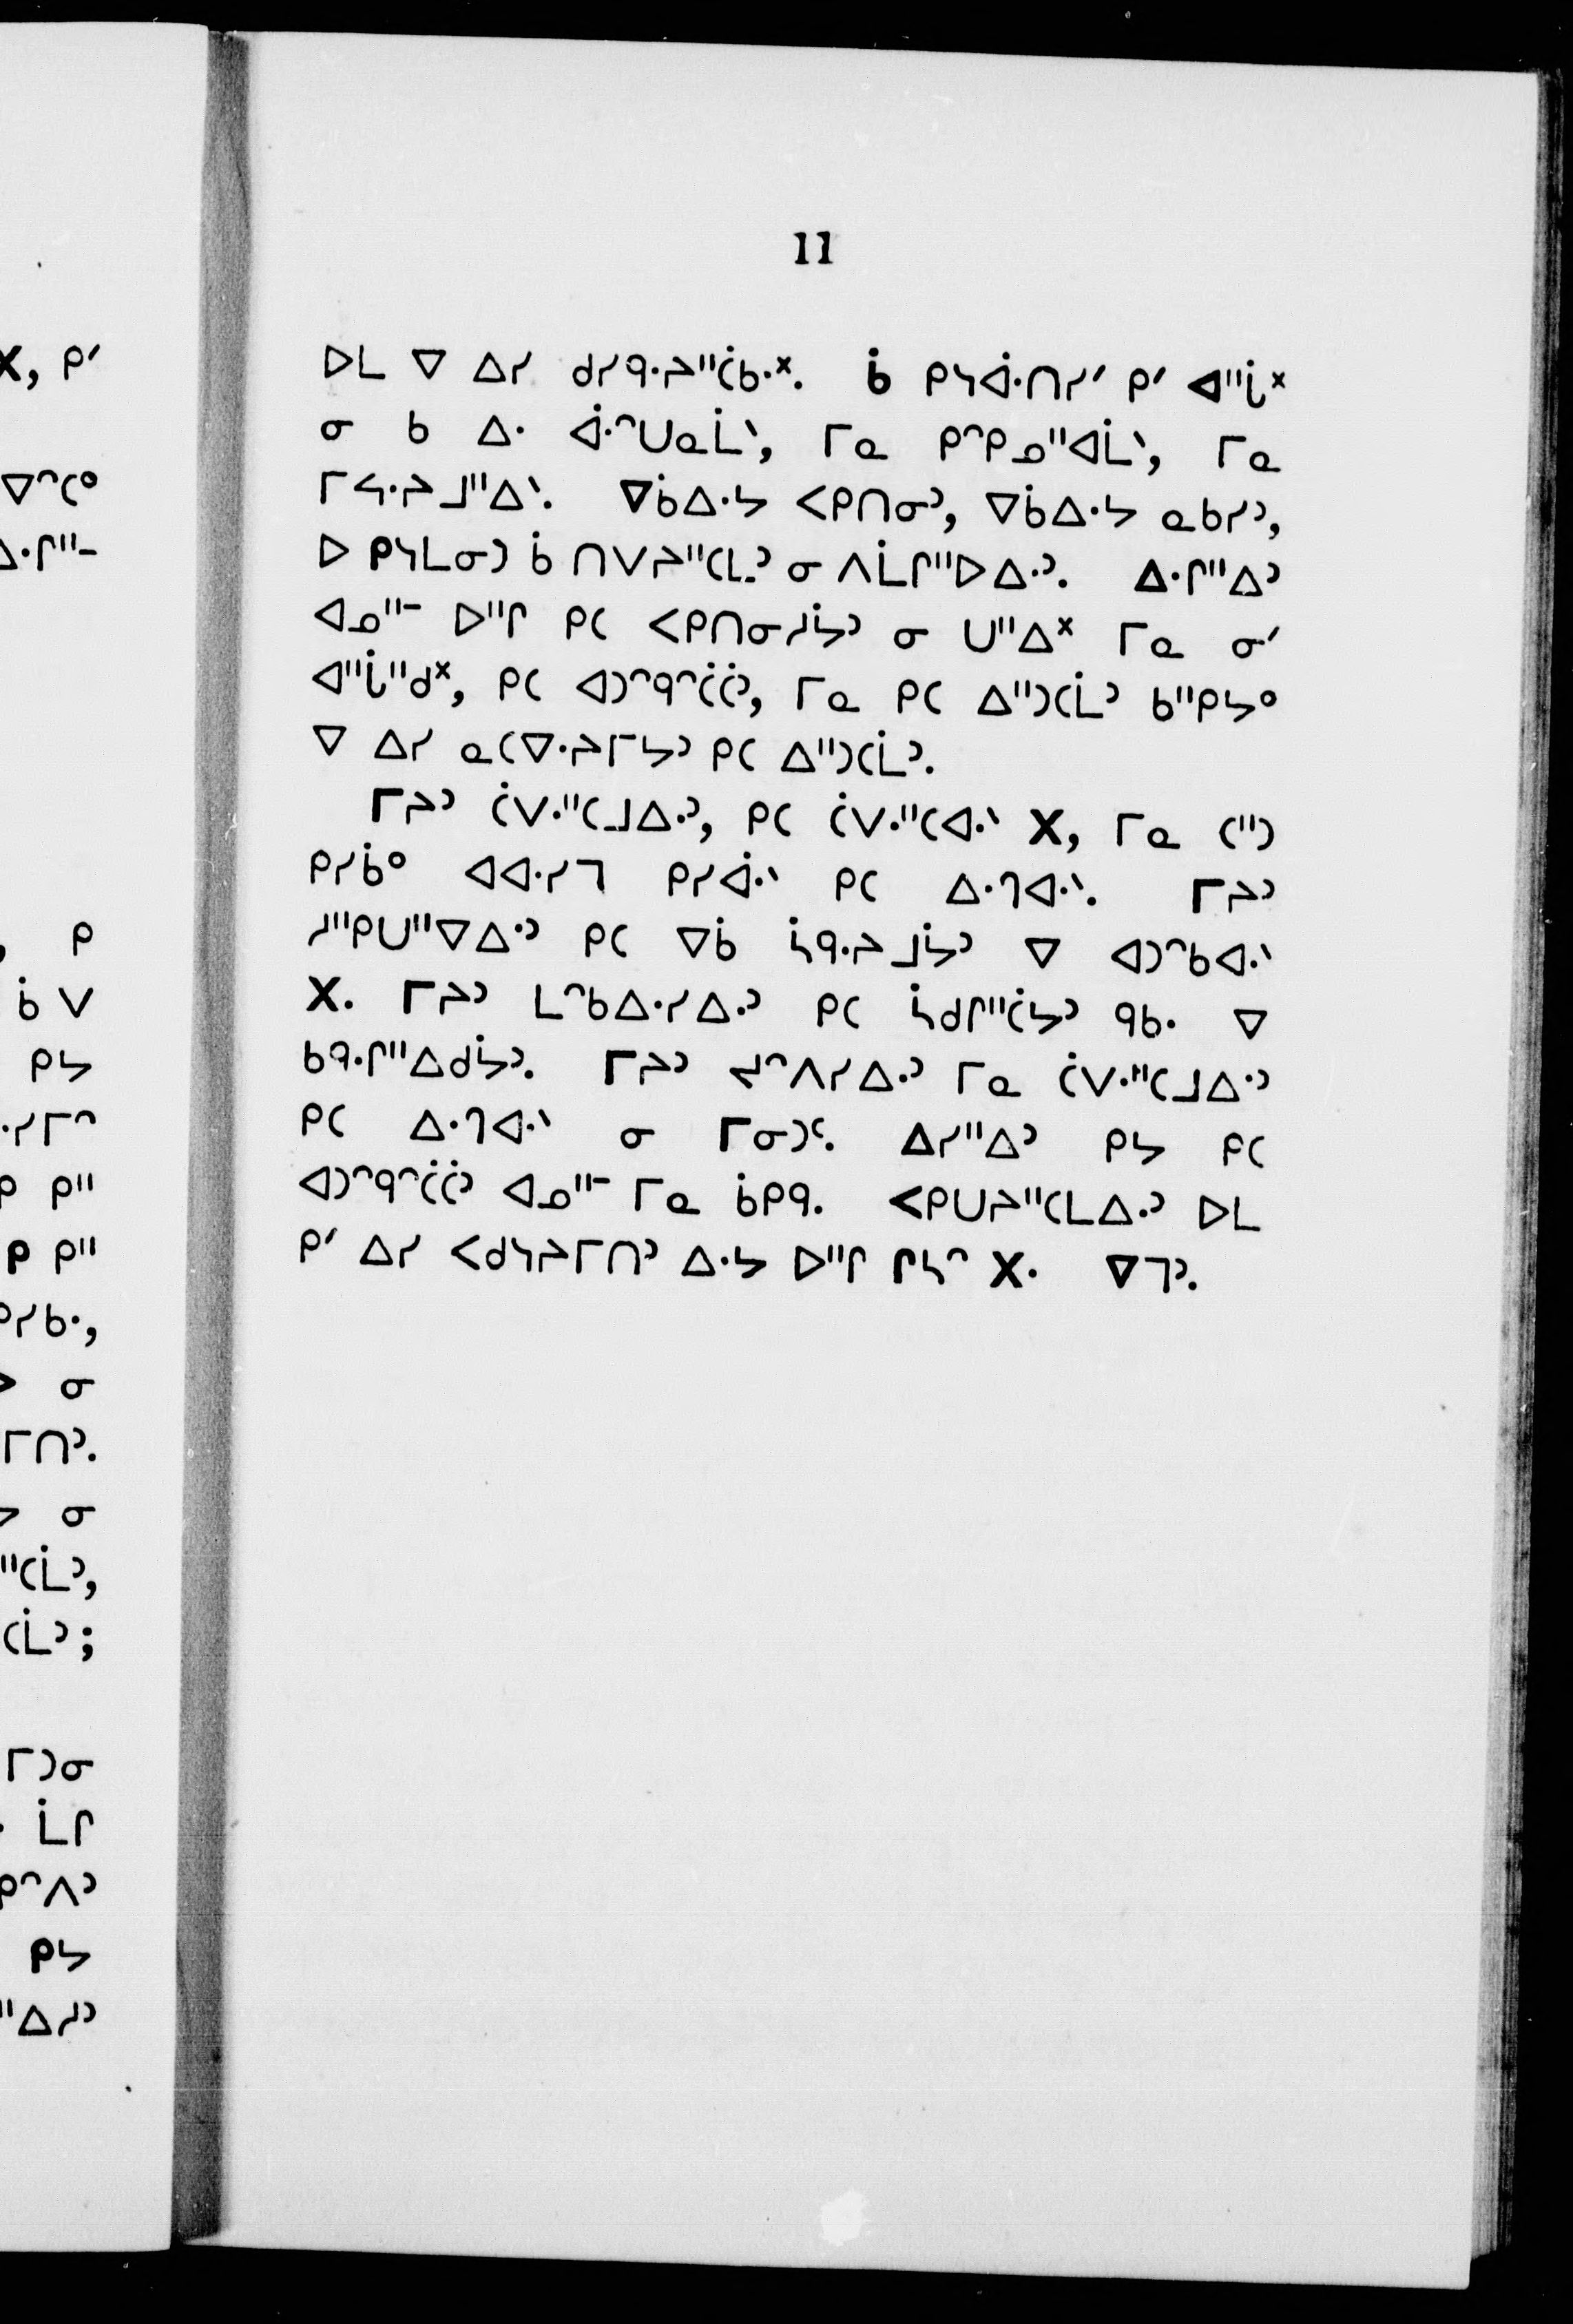 11
ᐅᒪ ᐁ ᐃᓯ ᑯᓯᑫᐧᔨᐦᑖᑲᐧᕽ. ᑳ ᑭᓴᐚᑎᓯᐟ ᑭᐟ ᐊᐦᒑᕽ
ᓂ ᑲ ᐃᐧ ᐚᐢᑌᓇᒫᐠ, ᒥᓇ ᑭᐢᑭᓄᐦᐊᒫᐠ, ᒥᓇ
ᒥᔪᐧᔨᒧᐦᐃᐠ. ᐁᑳᐃᐧᔭ ᐸᑭᑎᓂᐣ, ᐁᑳᐃᐧᔭ ᓇᑲᓯᐣ,
ᐅ ᑭᓴᒪᓂᑐ ᑳ ᑎᐯᔨᐦᑕᒪᐣ ᓂ ᐱᒫᒋᐦᐅᐃᐧᐣ. ᐃᐧᒋᐦᐃᐣ
ᐊᓄᐦᐨ ᐅᐦᒋ ᑭᑕ ᐸᑭᑎᓂᓱᔮᐣ ᓂ ᑌᐦᐃᕽ ᒥᓇ ᓂᐟ
ᐊᐦᒑᐦᑯᕽ, ᑭᑕ ᐊᑐᐢᑫᐢᑖᑖᐣ, ᒥᓇ ᑭᑕ ᐃᐦᑐᑕᒫᐣ ᑲᐦᑭᔭᐤ
ᐁ ᐃᓯ ᓇᑕᐁᐧᔨᒥᔭᐣ ᑭᑕ ᐃᐦᑐᑕᒫᐣ.
ᒥᔨᐣ ᑖᐯᐧᐦᑕᒧᐃᐧᐣ, ᑭᑕ ᑖᐯᐧᐦᑕᐊᐧᐠ X, ᒥᓇ ᑕᐦᑐ
ᑭᓯᑳᐤ ᐊᐊᐧᓯᒣ ᑭᓯᐚᐠ ᑭᑕ ᐃᐧᒉᐊᐧᐠ. ᒥᔨᐣ
ᓱᐦᑭᑌᐦᐁᐃᐧᐣ ᑭᑕ ᐁᑳ ᓵᑫᐧᔨᒧᔮᐣ ᐁ ᐊᑐᐢᑲᐊᐧᐠ
X. ᒥᔨᐣ ᒪᐢᑲᐃᐧᓯᐃᐧᐣ ᑭᑕ ᓵᑯᒋᐦᑖᔭᐣ ᑫᑲᐧ ᐁ
ᑲᑫᐧᒋᐦᐃᑯᔮᐣ. ᒥᔨᐣ ᔪᐢᐱᓯᐃᐧᐣ ᒥᓇ ᑖᐯᐧᐦᑕᒧᐃᐧᐣ
ᑭᑕ ᐃᐧᒉᐊᐧᐠ ᓂ ᒥᓂᑐᑦ. ᐃᓯᐦᐃᐣ ᑭᔭ ᑭᑕ
ᐊᑐᐢᑫᐢᑖᑖᐣ ᐊᓄᐦᐨ ᒥᓇ ᑳᑭᑫ. ᐸᑭᑌᔨᐦᑕᒪᐃᐧᐣ ᐅᒪ
ᑭᐟ ᐃᓯ ᐸᑯᓴᔨᒥᑎᐣ ᐃᐧᔭ ᐅᐦᒋ ᒋᓴᐢ X. ᐁᒣᐣ.